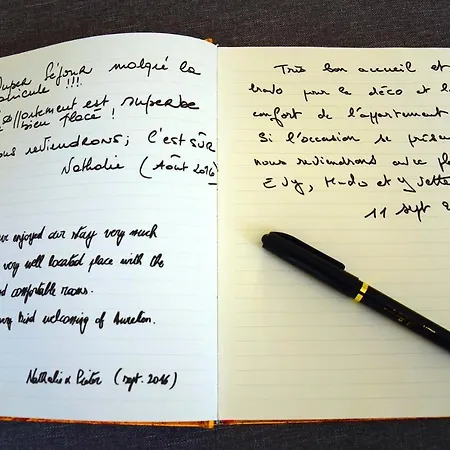 Super Séjour malgré la
canicule !!!
appartement est superbe
bien placé !
reviendrons, c'est sûr
Nathalie (Août 2016)
enjoyed our stay very much
very well located place with the
comfortable rooms.
kind welcoming of Aurelien.
Nathalie & Pieter (sept. 2016)
Très bon accueil et
bravo pour la déco et le
confort de l'appartement
Si l'occasion se présente
nous reviendrons avec
Evy, et Yvette
11 sept